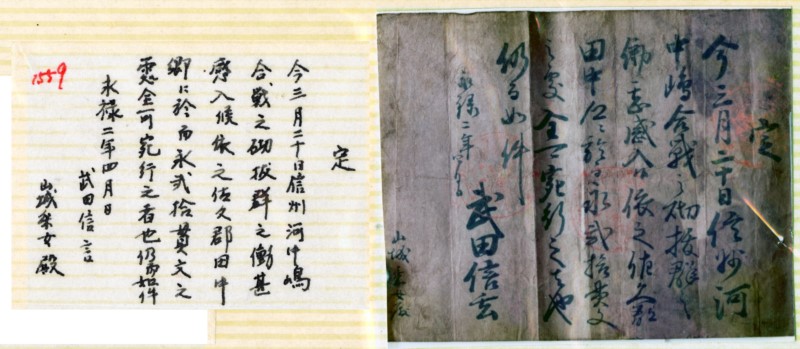 定
今三月二十日信州河
中嶋合戦之砌抜群之
働甚感入候依之佐久郡
田中郷に於而永弐拾貫文
之處全可宛行之者也
仍而如件
永禄二年四月日
武田信玄
山城采女殿
定
今三月二十日信州河中嶋
合戦之砌抜群之働甚
感入候依之佐久郡田中
郷に於而永弐拾貫文之
處全可宛行之者也仍而如件
永禄二年四月日
武田信玄
山城采女殿
1559